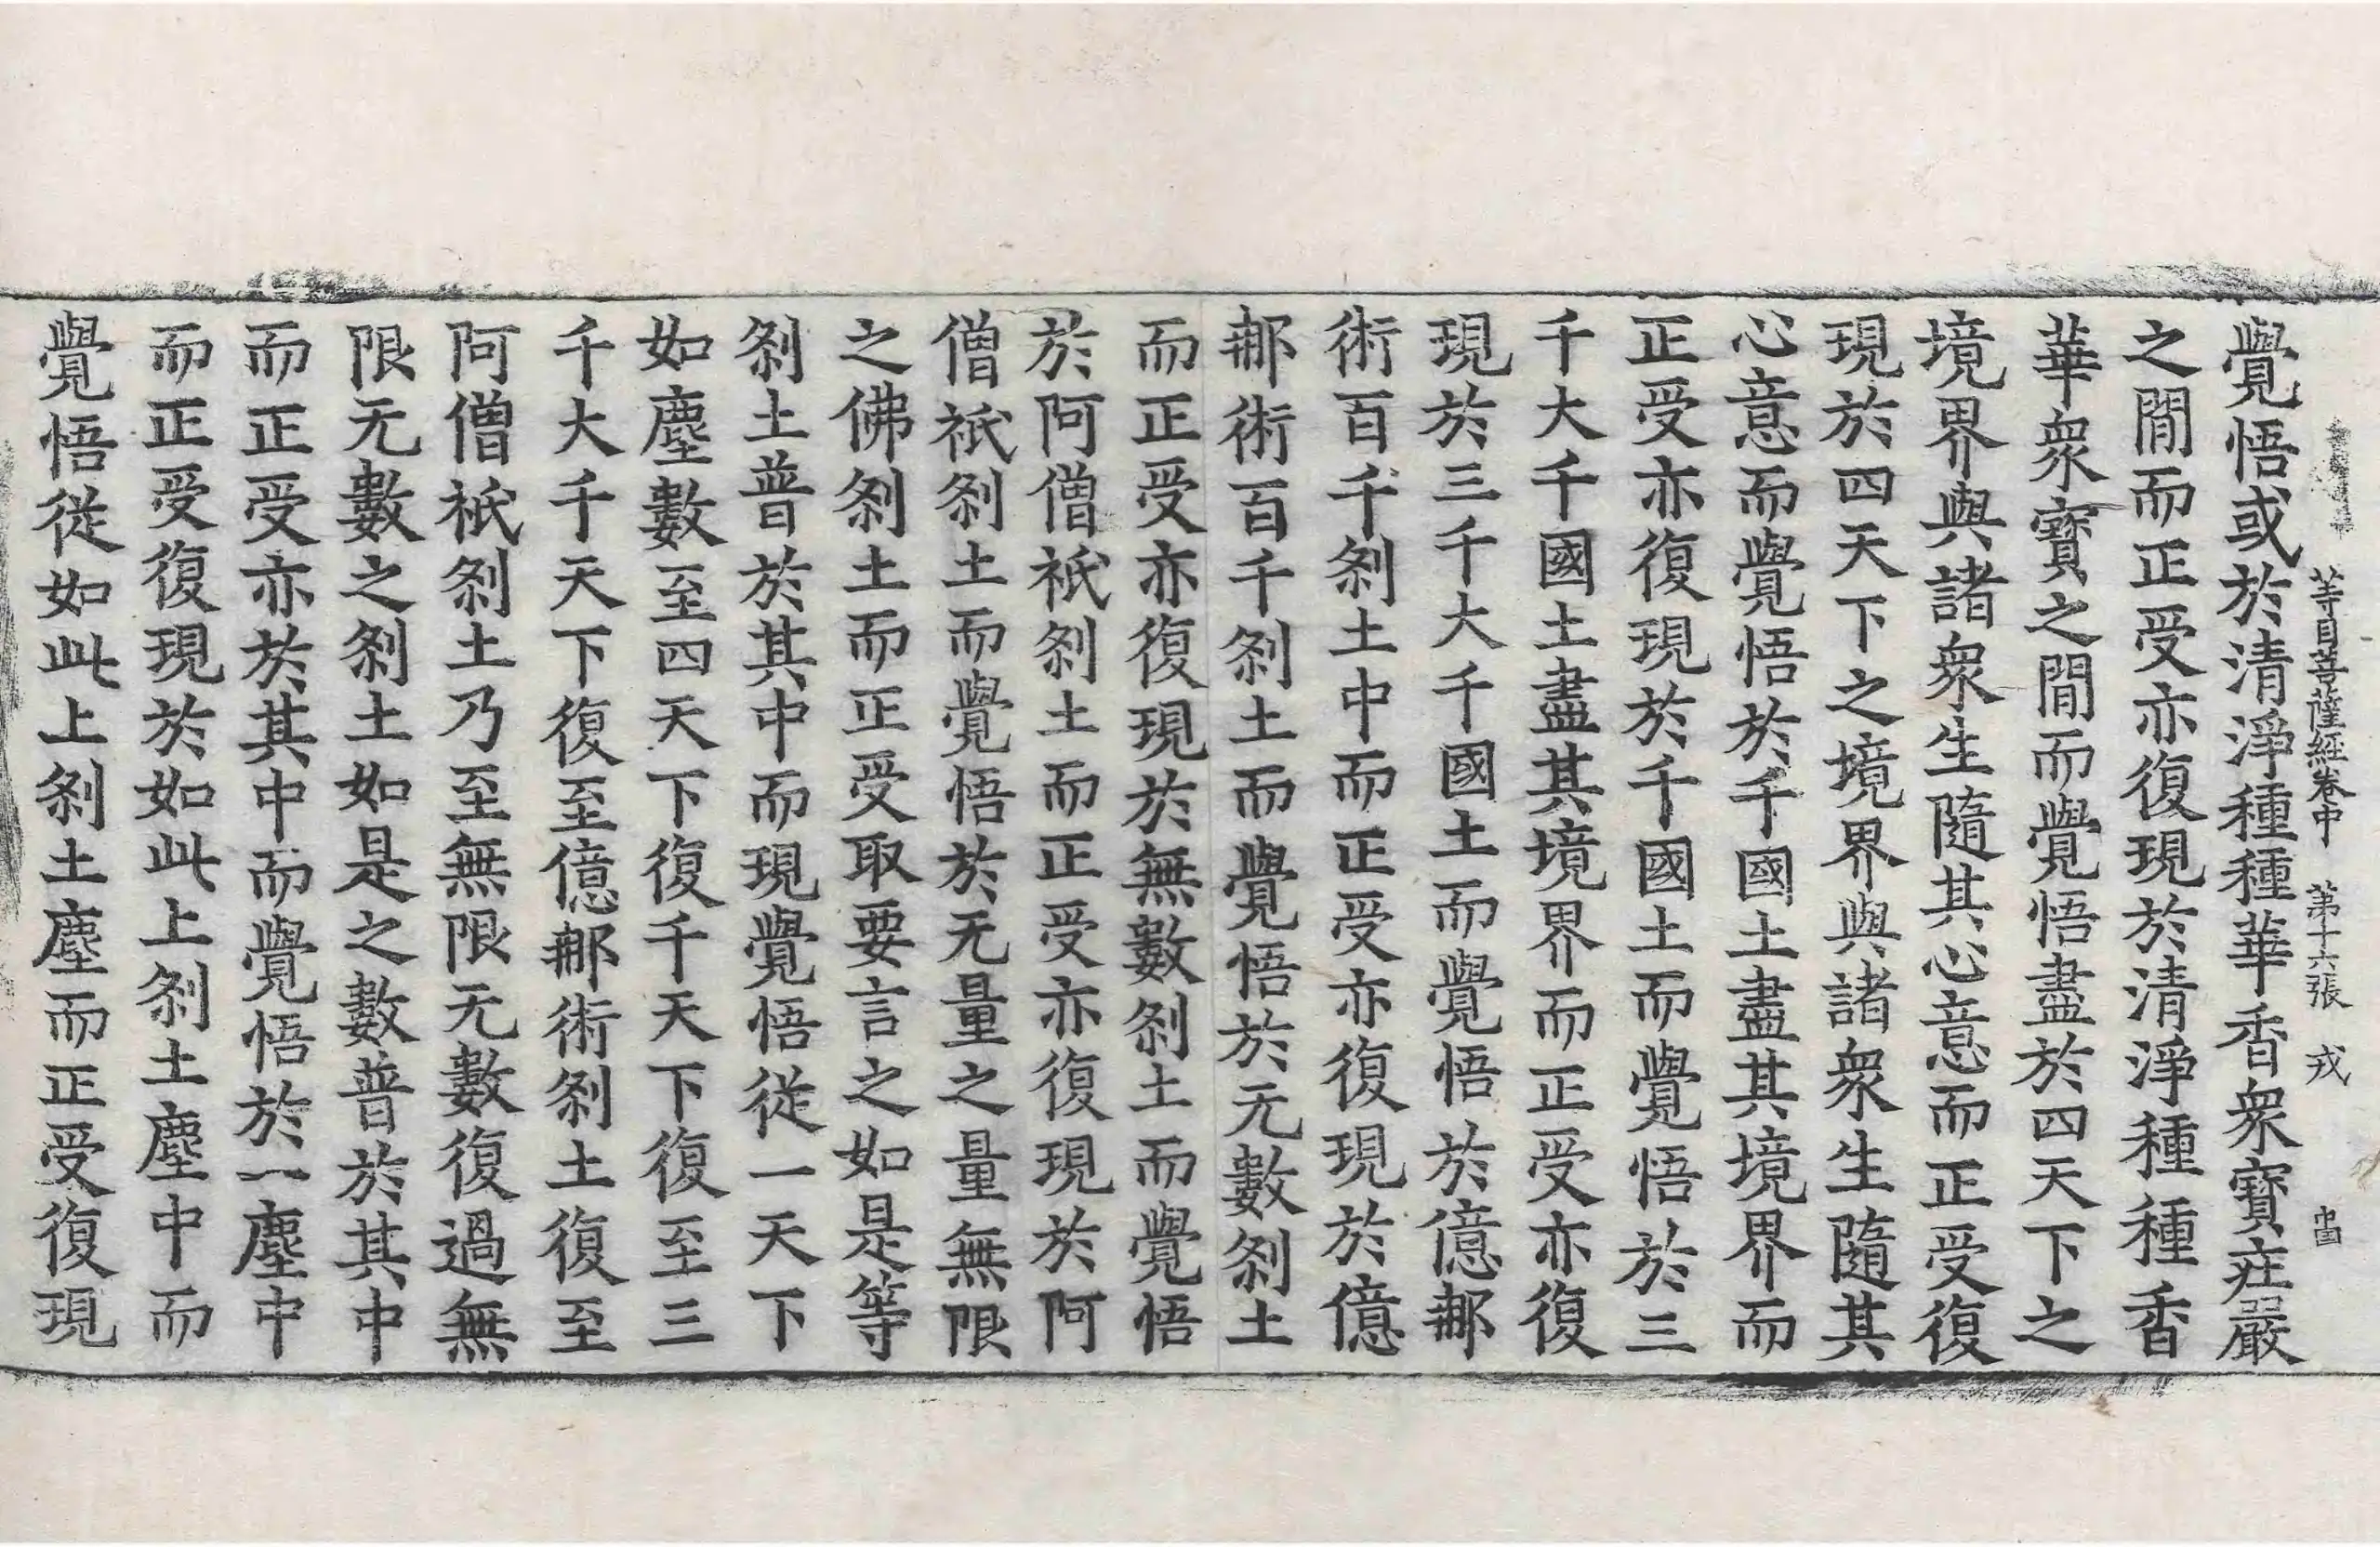 等目菩薩經卷中　第十六張　戎
覺悟或於清淨種種華香衆寶庄嚴
之閒而正受亦復現於清淨種種香
華衆寶之閒而覺悟盡於四天下之
境界與諸衆生隨其心意而正受復
現於四天下之境界與諸衆生隨其
心意而覺悟於千國土盡其境界而
正受亦復現於千國土而覺悟於三
千大千國土盡其境界而正受亦復
現於三千大千國土而覺悟於億𨚗
術百千刹土中而正受亦復現於億
𨚗術百千刹土而覺悟於无數刹土
而正受亦復現於無數刹土而覺悟
於阿僧祇刹土而正受亦復現於阿
僧祇刹土而覺悟於无量之量無限
之佛刹土而正受取要言之如是等
刹土普於其中而現覺悟從一天下
如塵數至四天下復千天下復至三
千大千天下復至億𨚗術刹土復至
阿僧祇刹土乃至無限无數復過無
限无數之刹土如是之數普於其中
而正受亦於其中而覺悟於一塵中
而正受復現於如此上刹土塵中而
覺悟從如此上刹土塵而正受復現